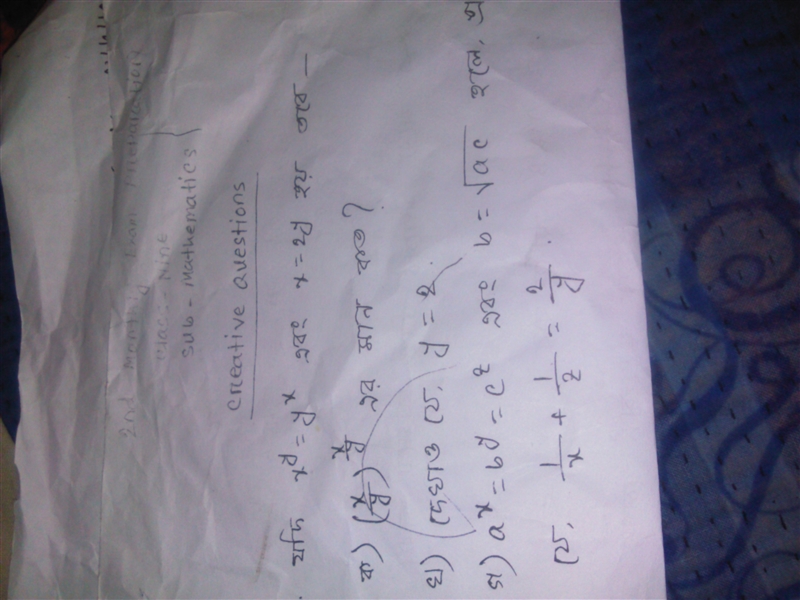 2nd Monthly Exam Preparation
Class - Nine
Sub - Mathematics
Creative Questions
যদি x^y = y^x এবং x = 2y হয় তবে —
ক) (x/y)^(x/y) এর মান কত?
খ) দেখাও যে, y = 2.
গ) a^x = b^y = c^z এবং b = √ac হলে,
যে, 1/x + 1/z = 2/y.